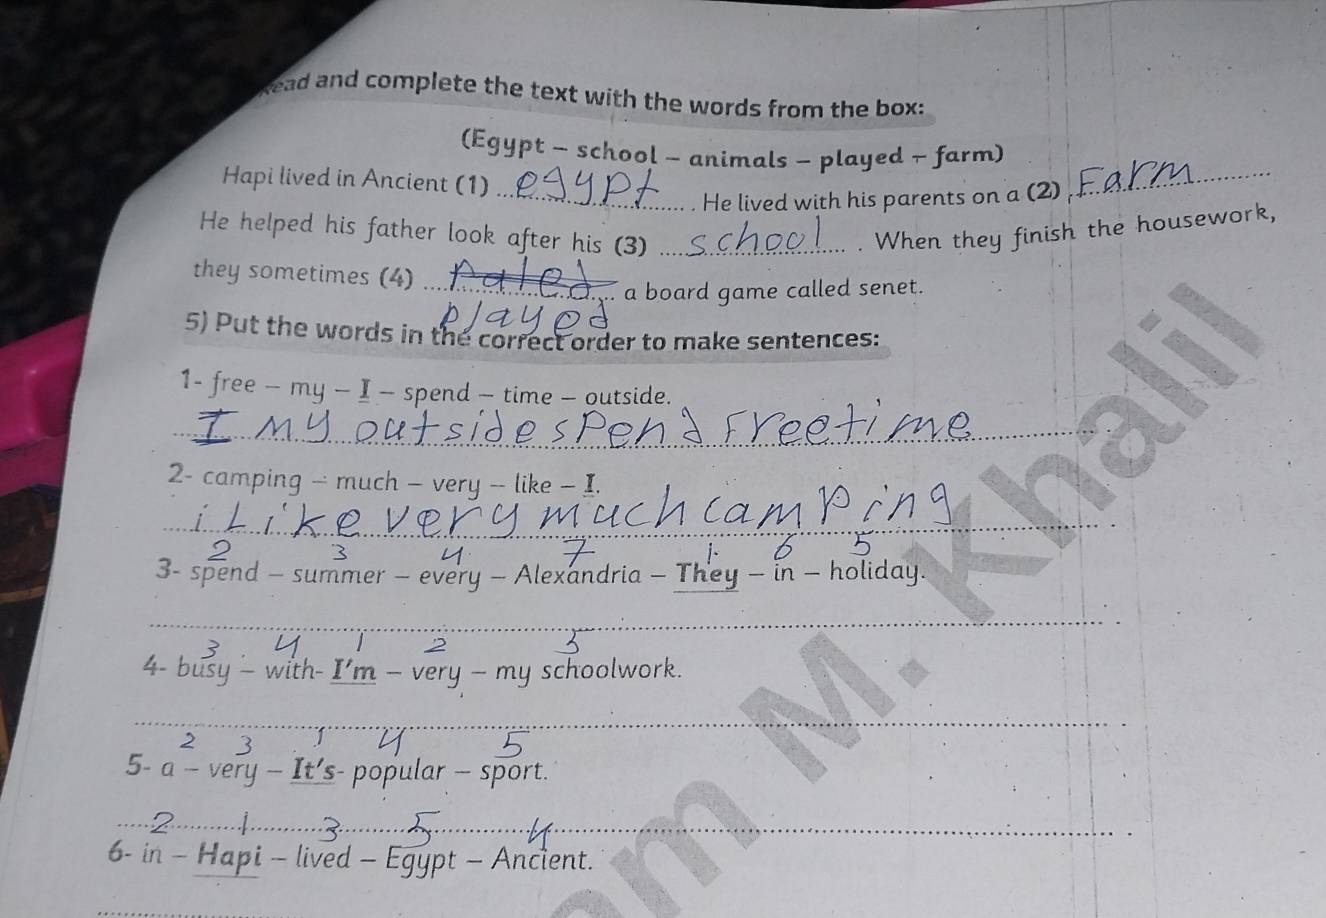 ead and complete the text with the words from the box:
(Egypt – school – animals – played – farm)
Hapi lived in Ancient (1) ... egypt ... . He lived with his parents on a (2) Farm
He helped his father look after his (3) ... school ... . When they finish the housework,
they sometimes (4) ... ... a board game called senet.
played
5) Put the words in the correct order to make sentences:
1- free – my – I – spend – time – outside.
I my outside spend Freetime
2- camping – much – very – like – I.
i Like very much camping
2 3 4 7 1 6 5
3- spend – summer – every – Alexandria – They – in – holiday.
3 4 1 2 5
4- busy – with- I'm – very – my schoolwork.
2 3 1 4 5
5- a – very – It's- popular – sport.
2 1 3 5 4
6- in – Hapi – lived – Egypt – Ancient.
am M. Khalil